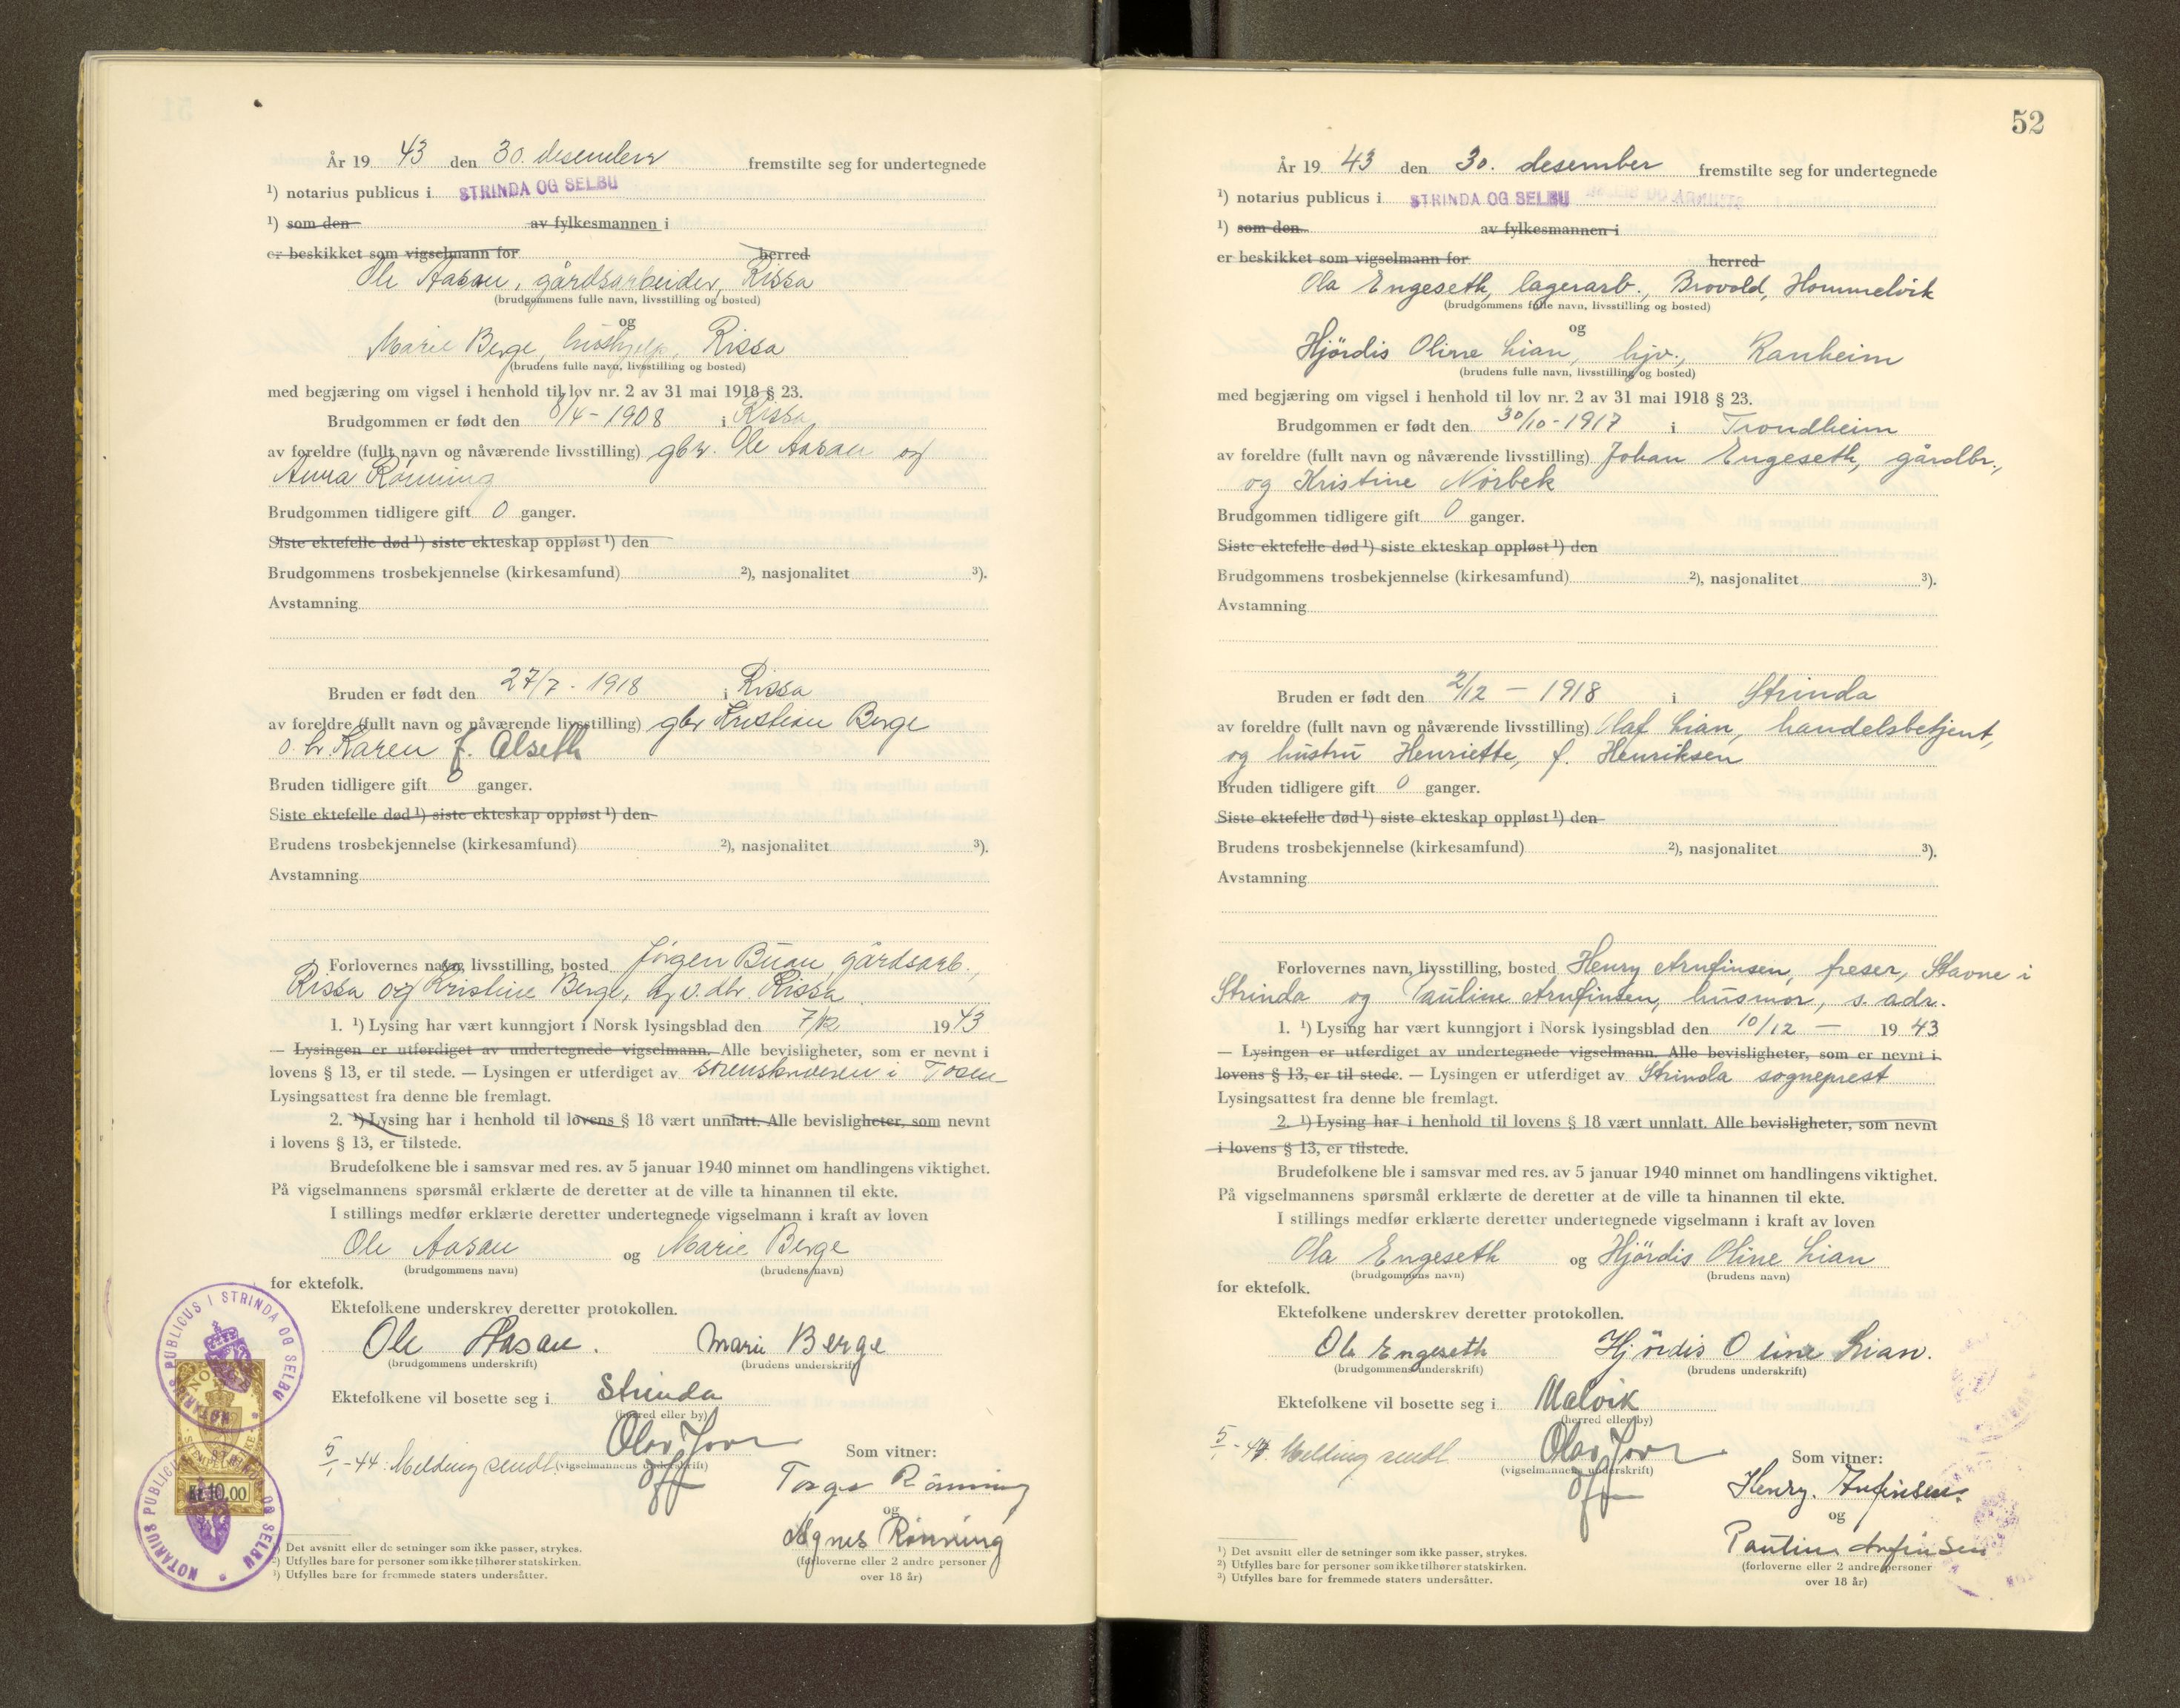 År 19 43 den 30. desember fremstilte seg for undertegnede
¹) notarius publicus i STRINDA OG SELBU
¹) som den av fylkesmannen i
er beskikket som vigselmann for herred
Ole Aasan, gårdsarbeider, Rissa
(brudgommens fulle navn, livsstilling og bosted)
og
Marie Berge, hushjelp, Rissa
(brudens fulle navn, livsstilling og bosted)
med begjæring om vigsel i henhold til lov nr. 2 av 31 mai 1918 § 23.
Brudgommen er født den 8/4 - 1908 i Rissa
av foreldre (fullt navn og nåværende livsstilling) gbr. Ole Aasan og
Anna Rønning
Brudgommen tidligere gift 0 ganger.
Siste ektefelle død ¹) siste ekteskap oppløst ¹) den
Brudgommens trosbekjennelse (kirkesamfund) ²), nasjonalitet ³).
Avstamning
Bruden er født den 27/7 - 1918 i Rissa
av foreldre (fullt navn og nåværende livsstilling) gbr Kristian Berge
o. hr. Karen f. Alseth
Bruden tidligere gift 0 ganger.
Siste ektefelle død ¹) siste ekteskap oppløst ¹) den
Brudens trosbekjennelse (kirkesamfund) ²), nasjonalitet ³).
Avstamning
Forlovernes navn, livsstilling, bosted Jørgen Buan, gårdsarb.,
Rissa og Kristine Berge, Rissa
1. ¹) Lysing har vært kunngjort i Norsk lysingsblad den 7/12 19 43
— Lysingen er utferdiget av undertegnede vigselmann. Alle bevisligheter, som er nevnt i
lovens § 13, er til stede. — Lysingen er utferdiget av sorenskriveren i Fosen
Lysingsattest fra denne ble fremlagt.
2. ¹) Lysing har i henhold til lovens § 18 vært unnlatt. Alle bevisligheter, som nevnt
i lovens § 13, er tilstede.
Brudefolkene ble i samsvar med res. av 5 januar 1940 minnet om handlingens viktighet.
På vigselmannens spørsmål erklærte de deretter at de ville ta hinannen til ekte.
I stillings medfør erklærte deretter undertegnede vigselmann i kraft av loven
Ole Aasan og Marie Berge
(brudgommens navn) (brudens navn)
for ektefolk.
Ektefolkene underskrev deretter protokollen.
Ole Aasan. Marie Berge
(brudgommens underskrift) (brudens underskrift)
Ektefolkene vil bosette seg i Strinda
(herred eller by)
5/1-44. Melding sendt.
(vigselmannens underskrift)
Som vitner:
Rønning
og
Agnes Rønning
(forloverne eller 2 andre personer
over 18 år)
NOTARIUS PUBLICUS I STRINDA OG SELBU
NORGE
Kr 10.00
NOTARIUS PUBLICUS I STRINDA OG SELBU
¹) Det avsnitt eller de setninger som ikke passer, strykes.
²) Utfylles bare for personer som ikke tilhører statskirken.
³) Utfylles bare for fremmede staters undersåtter.
52
År 19 43 den 30. desember fremstilte seg for undertegnede
¹) notarius publicus i STRINDA OG SELBU
¹) som den av fylkesmannen i
er beskikket som vigselmann for herred
Ola Engeseth, lagerarb., Brovold, Hommelvik
(brudgommens fulle navn, livsstilling og bosted)
og
Hjördis Oline Lian, hjv., Ranheim
(brudens fulle navn, livsstilling og bosted)
med begjæring om vigsel i henhold til lov nr. 2 av 31 mai 1918 § 23.
Brudgommen er født den 30/10 - 1917 i Trondheim
av foreldre (fullt navn og nåværende livsstilling) Johan Engeseth, gårdbr.,
og Kristine Norbek
Brudgommen tidligere gift 0 ganger.
Siste ektefelle død ¹) siste ekteskap oppløst ¹) den
Brudgommens trosbekjennelse (kirkesamfund) ²), nasjonalitet ³).
Avstamning
Bruden er født den 2/12 - 1918 i Strinda
av foreldre (fullt navn og nåværende livsstilling) Olaf Lian, handelsbetjent,
og hustru Henriette, f. Henriksen
Bruden tidligere gift 0 ganger.
Siste ektefelle død ¹) siste ekteskap oppløst ¹) den
Brudens trosbekjennelse (kirkesamfund) ²), nasjonalitet ³).
Avstamning
Forlovernes navn, livsstilling, bosted Henry Arnfinsen, freser, Stavne i
Strinda og Pauline Arnfinsen, husmor, s. adr.
1. ¹) Lysing har vært kunngjort i Norsk lysingsblad den 10/12 - 19 43
— Lysingen er utferdiget av undertegnede vigselmann. Alle bevisligheter, som er nevnt i
lovens § 13, er til stede. — Lysingen er utferdiget av Strinda sogneprest
Lysingsattest fra denne ble fremlagt.
2. ¹) Lysing har i henhold til lovens § 18 vært unnlatt. Alle bevisligheter, som nevnt
i lovens § 13, er tilstede.
Brudefolkene ble i samsvar med res. av 5 januar 1940 minnet om handlingens viktighet.
På vigselmannens spørsmål erklærte de deretter at de ville ta hinannen til ekte.
I stillings medfør erklærte deretter undertegnede vigselmann i kraft av loven
Ola Engeseth og Hjördis Oline Lian
(brudgommens navn) (brudens navn)
for ektefolk.
Ektefolkene underskrev deretter protokollen.
Ola Engeseth Hjördis Oline Lian.
(brudgommens underskrift) (brudens underskrift)
Ektefolkene vil bosette seg i Malvik
(herred eller by)
5/1-44 Melding sendt
(vigselmannens underskrift)
Som vitner:
Henry. Arnfinsen.
og
Pauline Arnfinsen
(forloverne eller 2 andre personer
over 18 år)
¹) Det avsnitt eller de setninger som ikke passer, strykes.
²) Utfylles bare for personer som ikke tilhører statskirken.
³) Utfylles bare for fremmede staters undersåtter.